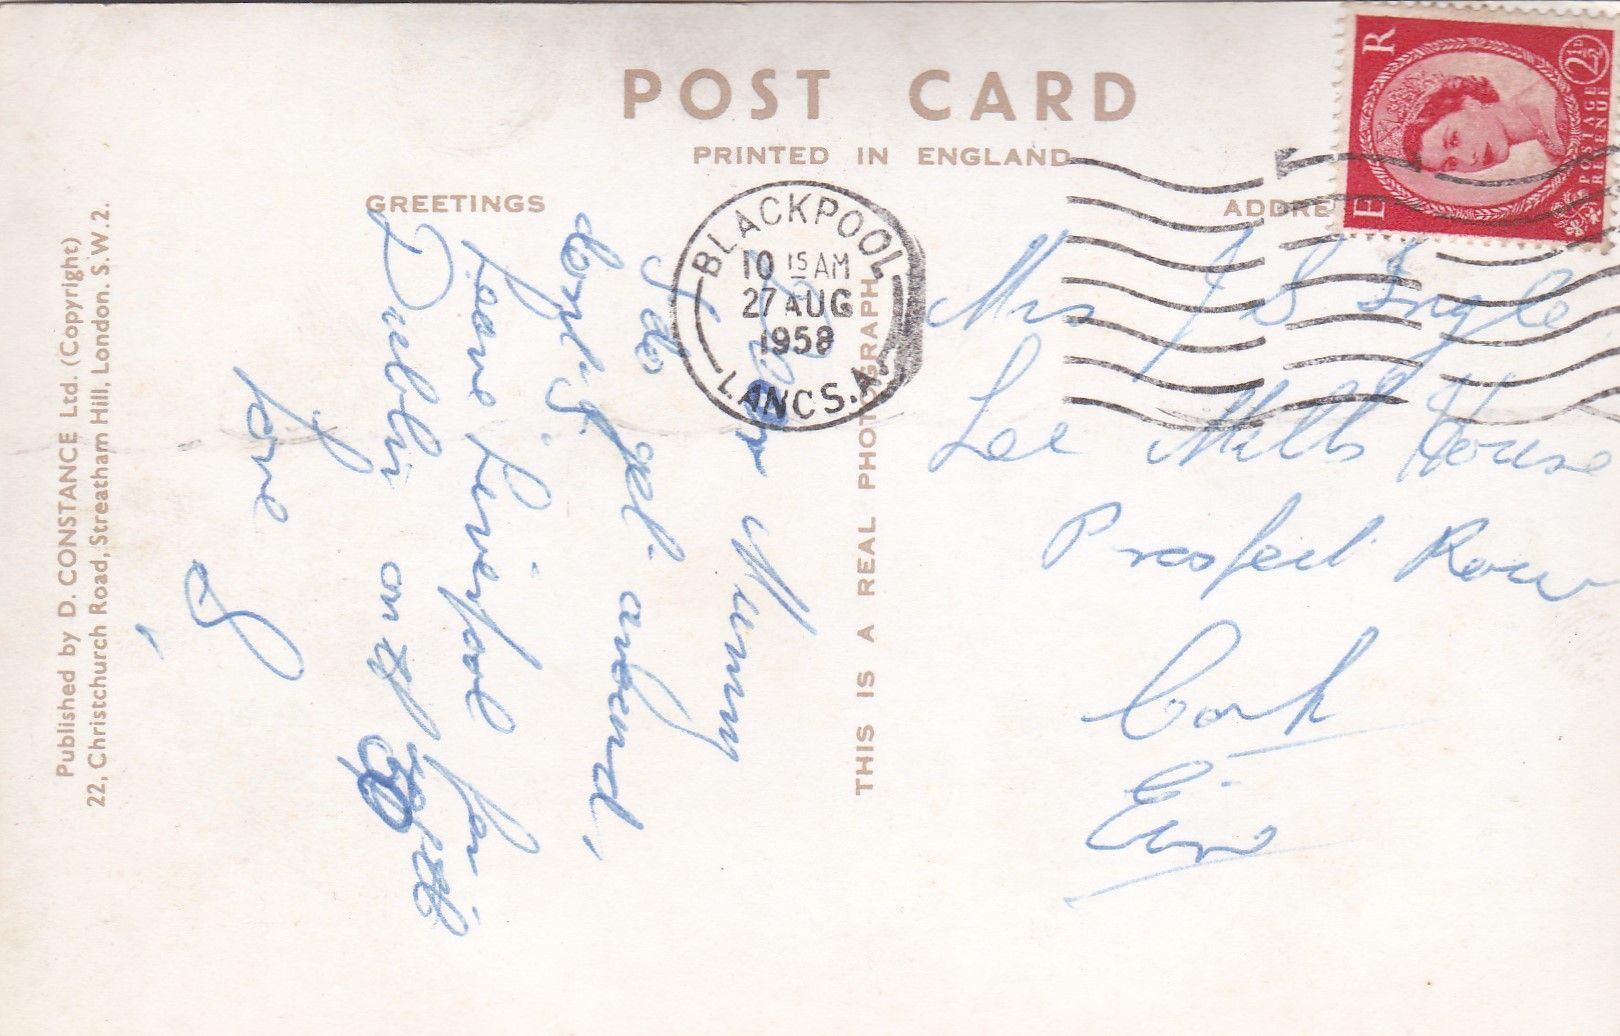 POST CARD
PRINTED IN ENGLAND
GREETINGS
ADDRE
E R
2½D
POSTAGE
REVENUE
BLACKPOOL
10 15 AM
27 AUG
1958
LANCS. A.
Dear Mummy
I do get around,
don't I.
Leave Liverpool for
Dublin on
love
J
Mrs J S Ingle
Lee Mills House
Prospect Row
Cork
Eire
THIS IS A REAL PHOTOGRAPH
Published by D. CONSTANCE Ltd. (Copyright)
22, Christchurch Road, Streatham Hill, London. S.W.2.